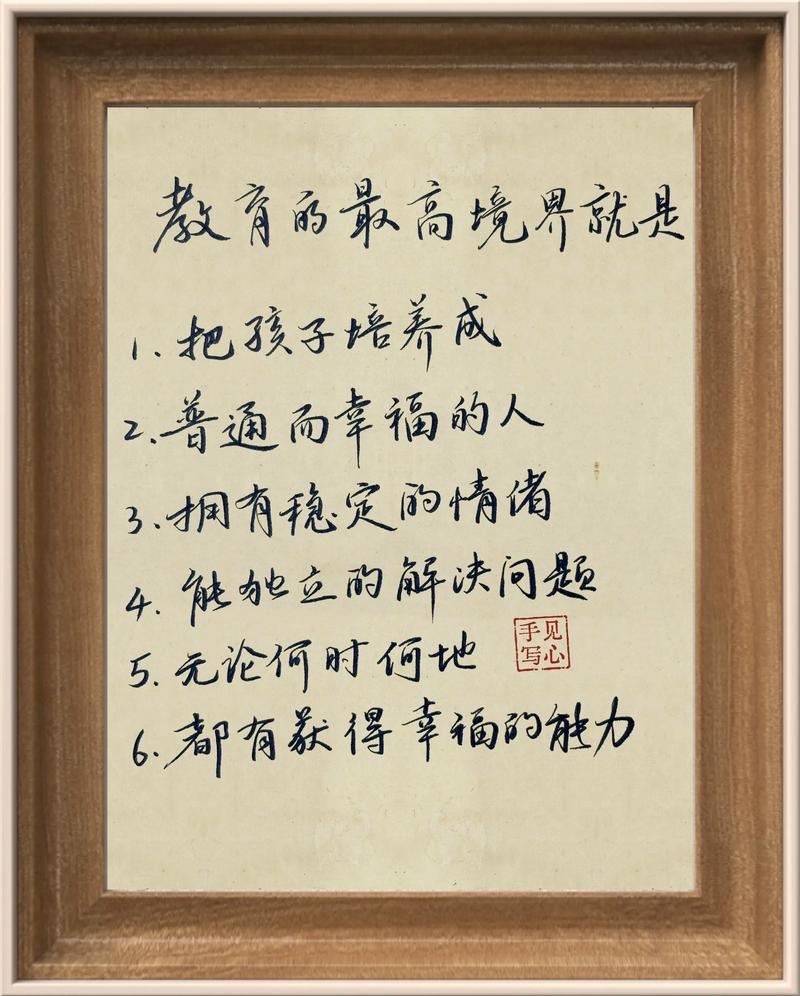 教育的最高境界就是
1.把孩子培养成
2.普通而幸福的人
3.拥有稳定的情绪
4.能独立的解决问题
5.无论何时何地
见心
手写
6.都有获得幸福的能力